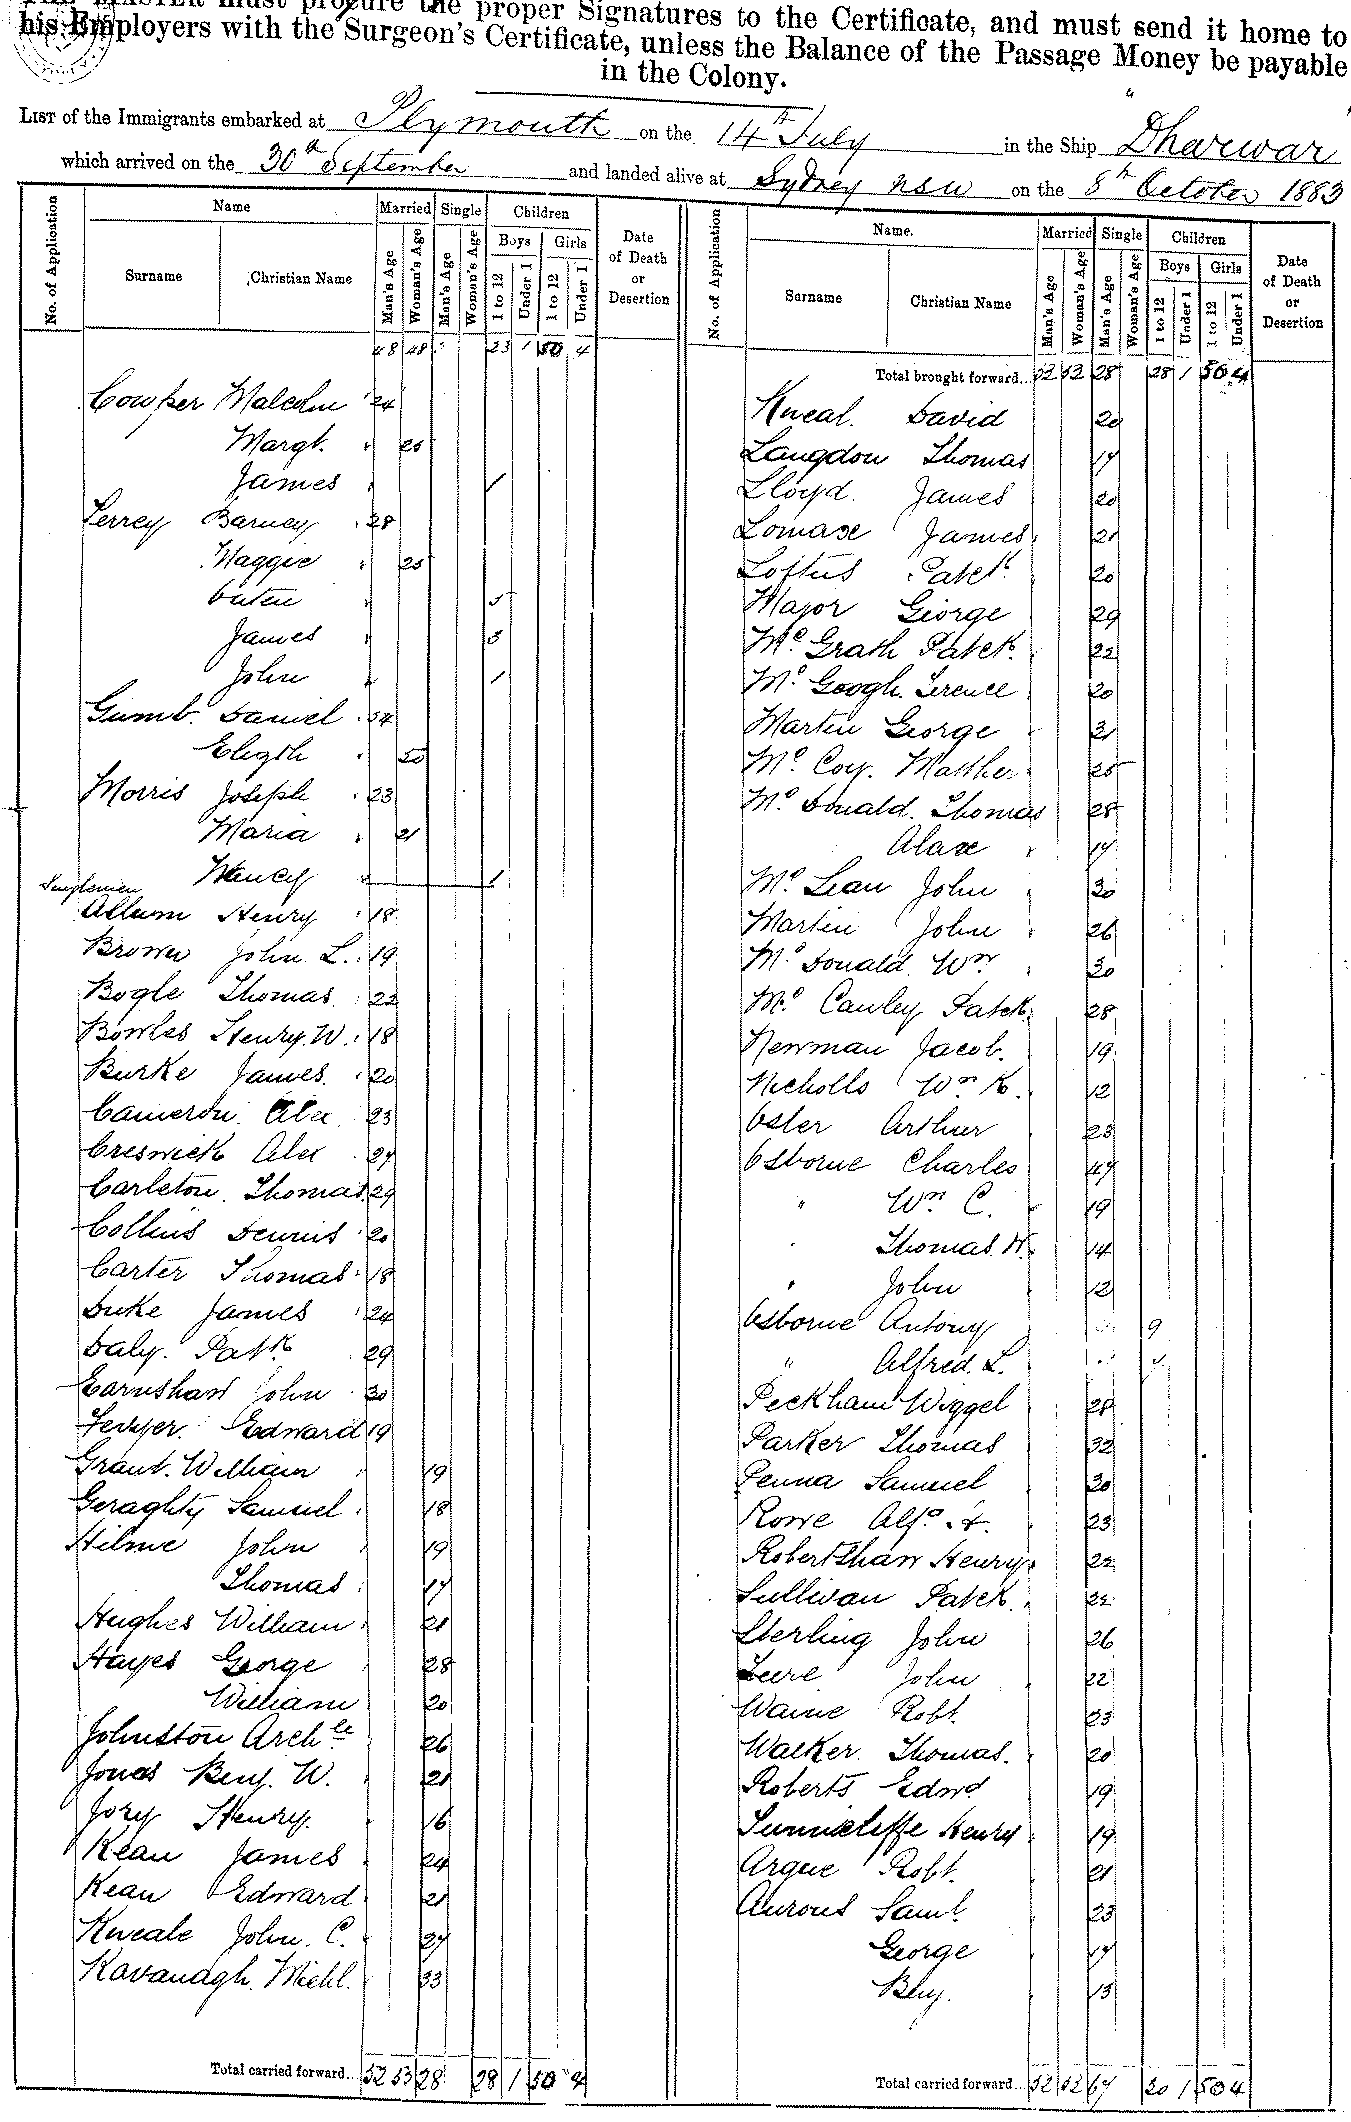 THE MASTER must procure the proper Signatures to the Certificate, and must send it home to
his Employers with the Surgeon's Certificate, unless the Balance of the Passage Money be payable
in the Colony.
LIST of the Immigrants embarked at Plymouth on the 14th July in the Ship "Dharwar"
which arrived on the 30th September and landed alive at Sydney NSW on the 8th October 1883
No. of Application Name Married Single Children Date of Death or Desertion
Surname Christian Name Man's Age Woman's Age Man's Age Woman's Age Boys Girls
1 to 12 Under 1 1 to 12 Under 1
48 48 23 1 50 4
Cowper Malcolm 24
Margt. " 25
James " 1
Ferrey Barney 28
Maggie " 25
Owen " 5
James " 3
John " 1
Gumb. Daniel 54
Elizth " 50
Morris Joseph 23
Maria " 21
Henery 1
Singlemen
Allum Henry 18
Brown John L. 19
Bogle Thomas 22
Bowles Henry. W. 18
Burke James. 20
Cameron. Alex 23
Creswick Alex 27
Carleton. Thomas 29
Collins Dennis 20
Carter Thomas 18
Duke James 24
Daly. Patk. 29
Earnshaw John 30
Fewyer. Edward 19
Grant. William 19
Geraghty Samuel 18
Hilme John 19
Thomas 17
Hughes William 21
Hayes George 28
William 20
Johnston Archie 26
Jones Benj. W. 21
Jory Henry. 16
Kean James 24
Kean Edward 21
Kneale John. C. 27
Kavanagh. Michl. 33
Total carried forward... 52 53 28 28 1 50 4
No. of Application Name. Married Single Children Date of Death or Desertion
Surname Christian Name Man's Age Woman's Age Man's Age Woman's Age Boys Girls
1 to 12 Under 1 1 to 12 Under 1
Total brought forward... 52 52 28 28 1 50 4
Kneal. David 20
Langdon Thomas 17
Lloyd. James 20
Lomax James 21
Loftus Patck. 20
Major George 29
Mc. Grath Patck. 22
Mc. Geogh. Terence 20
Martin George 21
Mc. Coy. Matthew 25
Mc. Donald. Thomas 28
Alax 17
Mc. Lean John 30
Martin John 26
Mc. Donald. Wm 30
Mc. Cauley Patck. 28
Newman Jacob. 19
Nicholls Wm K. 12
Osler Arthur 23
Osborne Charles 47
" Wm C. 19
" Thomas. H. 14
" John 12
Osborne Antony 9
" Alfred. L.
Peckham Wiggel 28
Parker Thomas 32
Penna Samuel 30
Rowe Alfd. A. 23
Robertshaw Henry 22
Sullivan Patck. 22
Sterling John 26
John 22
Waine Robt. 23
Walker. Thomas. 20
Roberts Edwd 19
Sunnicliffe Henry 19
Argue Robt. 21
Aurous Saml. 23
George 17
Benj. 13
Total carried forward... 52 52 67 30 1 50 4